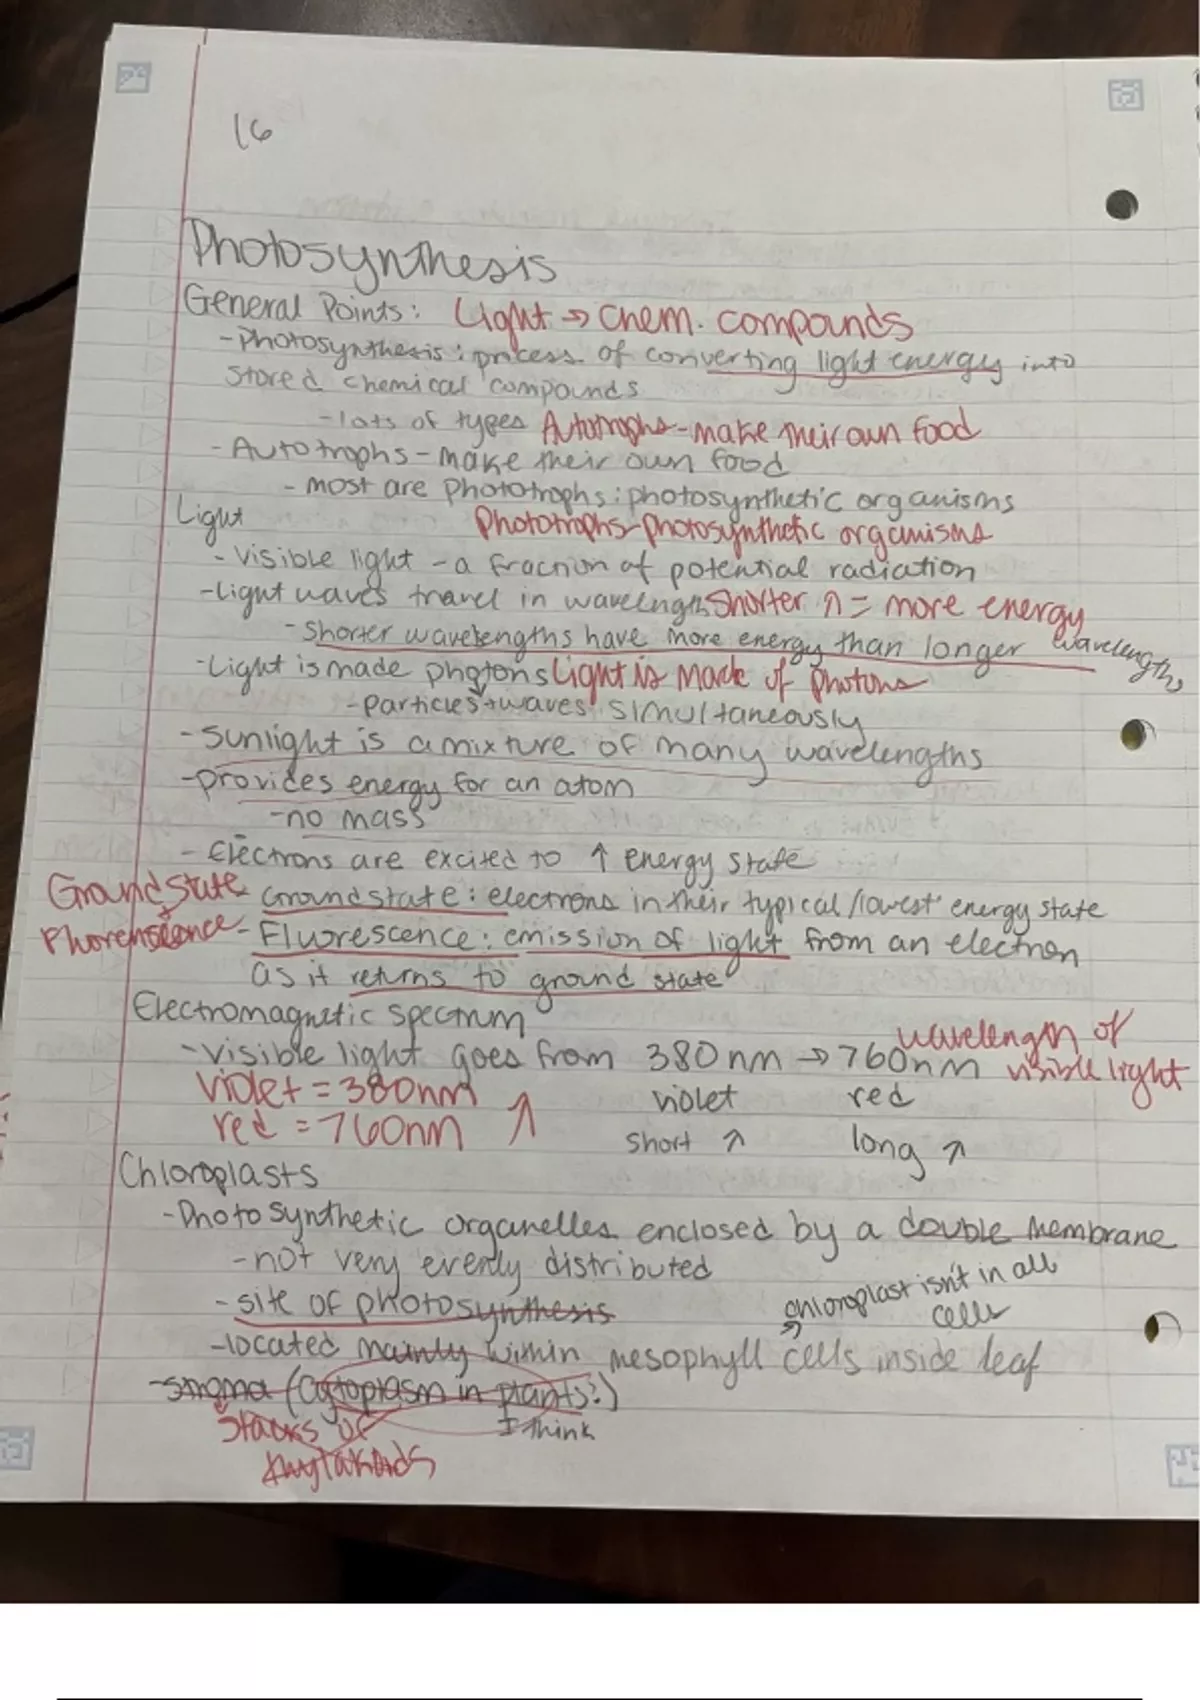 16
Photosynthesis
General Points: Light → Chem. compounds
- Photosynthesis: process of converting light energy into
stored chemical compounds
- lots of types Autotrophs - make their own food
- Autotrophs - make their own food
- most are phototrophs: photosynthetic organisms
Light Phototrophs - photosynthetic organisms
- visible light - a fraction of potential radiation
- Light waves travel in wavelength Shorter λ = more energy
- Shorter wavelengths have more energy than longer wavelengths
- Light is made photons Light is made of photons
- Particles + waves simultaneously
- Sunlight is a mixture of many wavelengths
- provides energy for an atom
- no mass
- Electrons are excited to ↑ energy state
Ground state - Ground state: electrons in their typical/lowest energy state
- Fluorescence: emission of light from an electron
as it returns to ground state
Electromagnetic spectrum
wavelength of
- visible light goes from 380nm → 760nm visible light
violet = 380nm violet red
red = 760nm short λ long λ
Chloroplasts
- Photosynthetic organelles enclosed by a double membrane
- not very evenly distributed
chloroplast isn't in all
- site of photosynthesis cells
- located mainly within mesophyll cells inside leaf
(Cytoplasm in plants?)
Stacks of I think